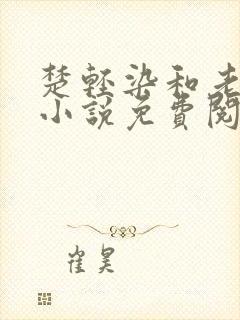 楚轻染和老
小说免费阅
崔昊